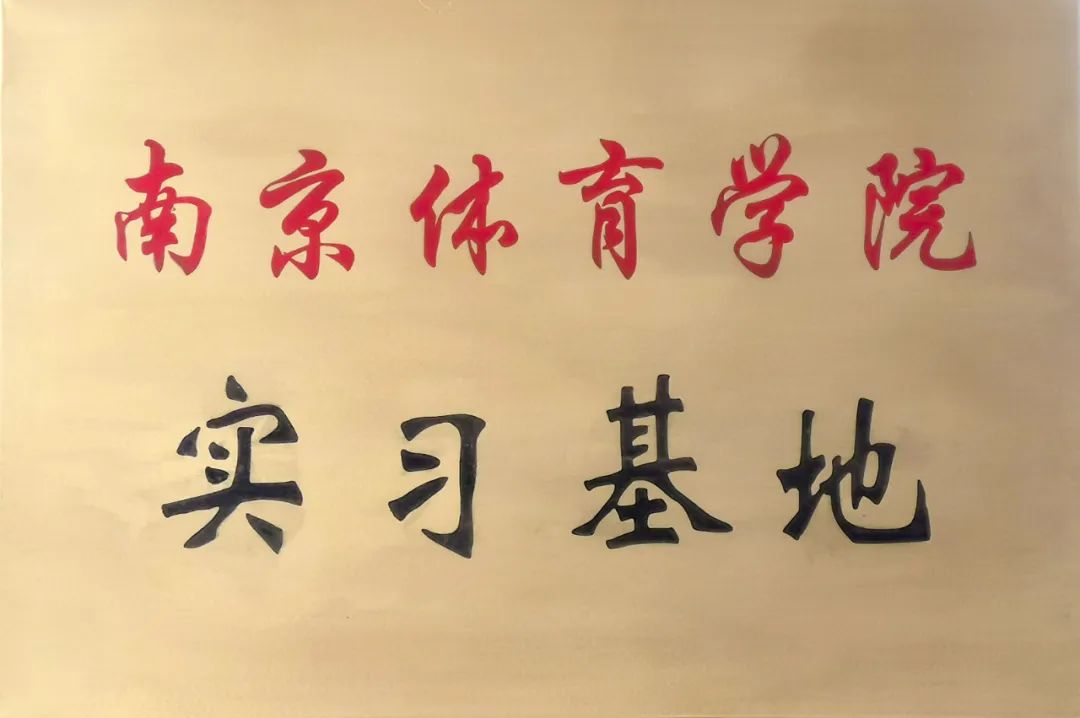 南京体育学院
实习基地